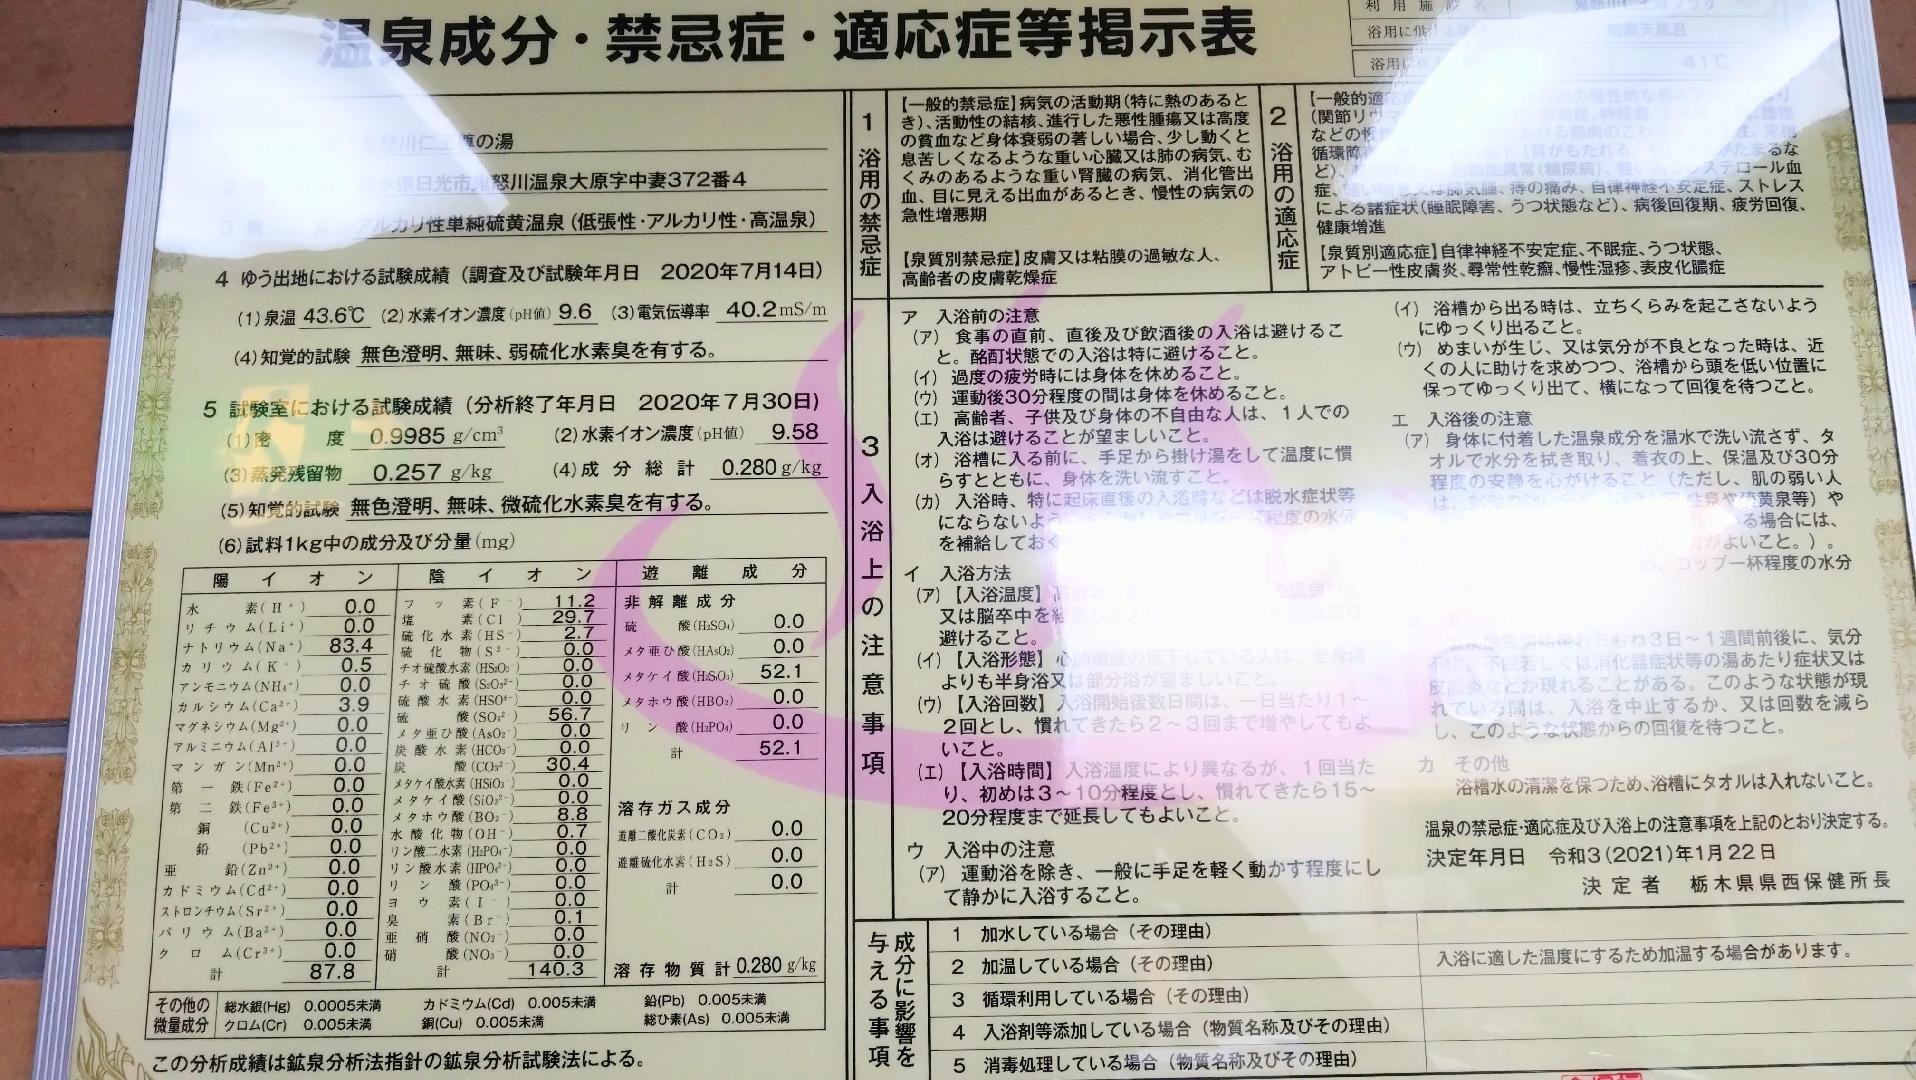 温泉成分・禁忌症・適応症等掲示表
利用施設名
浴用に供する
浴用に
41℃
の湯
日光市鬼怒川温泉大原字中妻372番4
3 泉
アルカリ性単純硫黄温泉(低張性・アルカリ性・高温泉)
4 ゆう出地における試験成績(調査及び試験年月日 2020年7月14日)
(1)泉温 43.6℃ (2)水素イオン濃度(pH値) 9.6 (3)電気伝導率 40.2mS/m
(4)知覚的試験 無色澄明、無味、弱硫化水素臭を有する。
5 試験室における試験成績(分析終了年月日 2020年7月30日)
(1)密度 0.9985 g/cm³ (2)水素イオン濃度(pH値) 9.58
(3)蒸発残留物 0.257 g/kg (4)成分総計 0.280g/kg
(5)知覚的試験 無色澄明、無味、微硫化水素臭を有する。
(6)試料1kg中の成分及び分量(mg)
陽イオン
水素(H⁺) 0.0
リチウム(Li⁺) 0.0
ナトリウム(Na⁺) 83.4
カリウム(K⁺) 0.5
アンモニウム(NH₄⁺) 0.0
カルシウム(Ca²⁺) 3.9
マグネシウム(Mg²⁺) 0.0
アルミニウム(Al³⁺) 0.0
マンガン(Mn²⁺) 0.0
第一鉄(Fe²⁺) 0.0
第二鉄(Fe³⁺) 0.0
銅(Cu²⁺) 0.0
鉛(Pb²⁺) 0.0
亜鉛(Zn²⁺) 0.0
カドミウム(Cd²⁺) 0.0
ストロンチウム(Sr²⁺) 0.0
バリウム(Ba²⁺) 0.0
クロム(Cr³⁺) 0.0
計 87.8
陰イオン
フッ素(F⁻) 11.2
塩素(Cl⁻) 29.7
硫化水素(HS⁻) 2.7
硫化物(S²⁻) 0.0
チオ硫酸水素(HS₂O₃⁻) 0.0
チオ硫酸(S₂O₃²⁻) 0.0
硫酸水素(HSO₄⁻) 0.0
硫酸(SO₄²⁻) 56.7
メタ亜ひ酸(AsO₂⁻) 0.0
炭酸水素(HCO₃⁻) 0.0
炭酸(CO₃²⁻) 30.4
メタケイ酸水素(HSiO₃⁻) 0.0
メタケイ酸(SiO₃²⁻) 0.0
メタホウ酸(BO₂⁻) 8.8
水酸化物(OH⁻) 0.7
リン酸二水素(H₂PO₄⁻) 0.0
リン酸水素(HPO₄²⁻) 0.0
リン酸(PO₄³⁻) 0.0
ヨウ素(I⁻) 0.0
臭素(Br⁻) 0.1
亜硝酸(NO₂⁻) 0.0
硝酸(NO₃⁻) 0.0
計 140.3
遊離成分
非解離成分
硫酸(H₂SO₄) 0.0
メタ亜ひ酸(HAsO₂) 0.0
メタケイ酸(H₂SiO₃) 52.1
メタホウ酸(HBO₂) 0.0
リン酸(H₃PO₄) 0.0
計 52.1
溶存ガス成分
遊離二酸化炭素(CO₂) 0.0
遊離硫化水素(H₂S) 0.0
計 0.0
溶存物質計 0.280 g/kg
その他の微量成分
総水銀(Hg) 0.0005未満 カドミウム(Cd) 0.005未満 鉛(Pb) 0.005未満
クロム(Cr) 0.005未満 銅(Cu) 0.005未満 総ひ素(As) 0.005未満
この分析成績は鉱泉分析法指針の鉱泉分析試験法による。
1 浴用の禁忌症
【一般的禁忌症】病気の活動期(特に熱のあると
き)、活動性の結核、進行した悪性腫瘍又は高度
の貧血など身体衰弱の著しい場合、少し動くと
息苦しくなるような重い心臓又は肺の病気、む
くみのあるような重い腎臓の病気、消化管出
血、目に見える出血があるとき、慢性の病気の
急性増悪期
【泉質別禁忌症】皮膚又は粘膜の過敏な人、
高齢者の皮膚乾燥症
2 浴用の適応症
【一般的適応
(関節リウマ
などの
循環障
症、 痔の痛み、自律神経不安定症、ストレス
による諸症状(睡眠障害、うつ状態など)、病後回復期、疲労回復、
健康増進
【泉質別適応症】自律神経不安定症、不眠症、うつ状態、
アトピー性皮膚炎、尋常性乾癬、慢性湿疹、表皮化膿症
3 入浴上の注意事項
ア 入浴前の注意
(ア) 食事の直前、直後及び飲酒後の入浴は避けるこ
と。酩酊状態での入浴は特に避けること。
(イ) 過度の疲労時には身体を休めること。
(ウ) 運動後30分程度の間は身体を休めること。
(エ) 高齢者、子供及び身体の不自由な人は、1人での
入浴は避けることが望ましいこと。
(オ) 浴槽に入る前に、手足から掛け湯をして温度に慣
らすとともに、身体を洗い流すこと。
(カ) 入浴時、特に起床直後の入浴時などは脱水症状等
にならないよう 程度の水分
を補給しておく
イ 入浴方法
(ア)【入浴温度】
又は脳卒中を経
避けること。
(イ)【入浴形態】心肺機能の低下している人は、全身浴
よりも半身浴又は部分浴が望ましいこと。
(ウ)【入浴回数】入浴開始後数日間は、一日当たり1~
2回とし、慣れてきたら2~3回まで増やしてもよ
いこと。
(エ)【入浴時間】入浴温度により異なるが、1回当た
り、初めは3~10分程度とし、慣れてきたら15~
20分程度まで延長してもよいこと。
ウ 入浴中の注意
(ア) 運動浴を除き、一般に手足を軽く動かす程度にし
て静かに入浴すること。
(イ) 浴槽から出る時は、立ちくらみを起こさないよう
にゆっくり出ること。
(ウ) めまいが生じ、又は気分が不良となった時は、近
くの人に助けを求めつつ、浴槽から頭を低い位置に
保ってゆっくり出て、横になって回復を待つこと。
エ 入浴後の注意
(ア) 身体に付着した温泉成分を温水で洗い流さず、タ
オルで水分を拭き取り、着衣の上、保温及び30分
程度の安静を心がけること(ただし、肌の弱い人
は、 硫黄泉等)や
場合には、
がよいこと。)。
コップ一杯程度の水分
おおむね3日~1週間前後に、気分
不快、不眠若しくは消化器症状等の湯あたり症状又は
皮膚炎などが現れることがある。このような状態が現
れている間は、入浴を中止するか、又は回数を減ら
し、このような状態からの回復を待つこと。
カ その他
浴槽水の清潔を保つため、浴槽にタオルは入れないこと。
温泉の禁忌症・適応症及び入浴上の注意事項を上記のとおり決定する。
決定年月日 令和3(2021)年1月22日
決定者 栃木県県西保健所長
成分に影響を与える事項
1 加水している場合(その理由)
2 加温している場合(その理由) 入浴に適した温度にするため加温する場合があります。
3 循環利用している場合(その理由)
4 入浴剤等添加している場合(物質名称及びその理由)
5 消毒処理している場合(物質名称及びその理由)